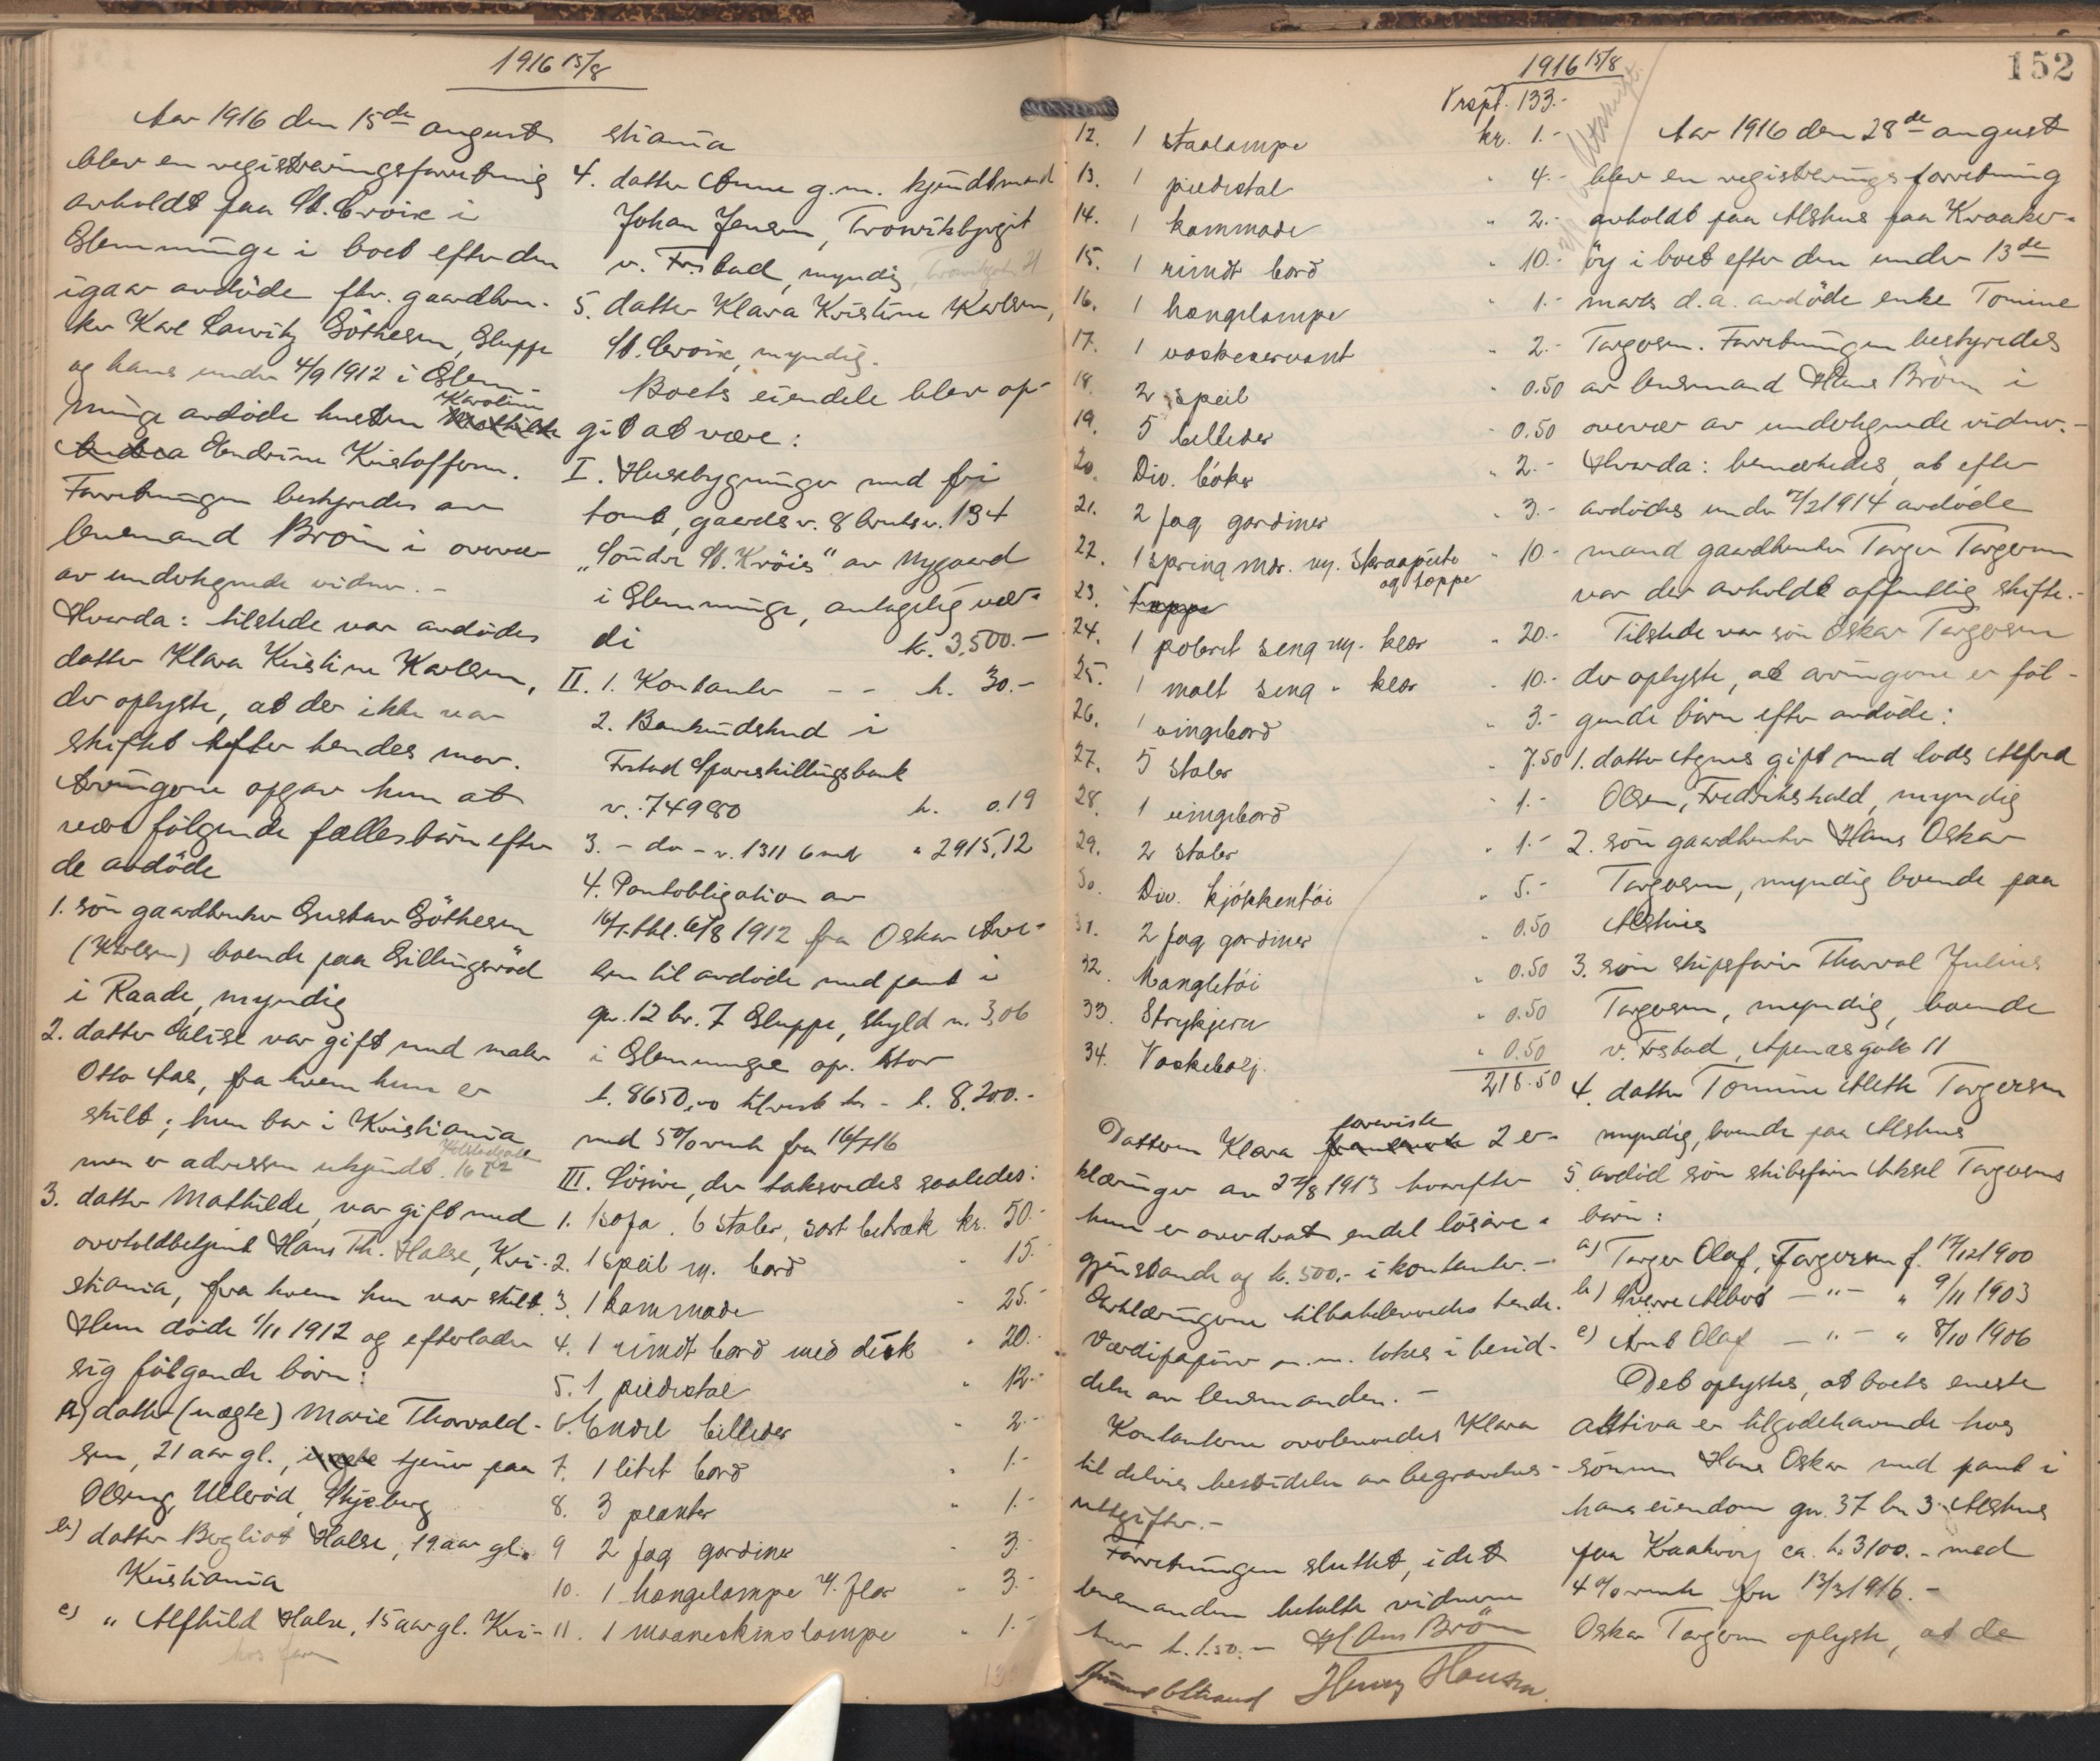 1916 15/8
Aar 1916 den 15de august
blev en registreringsforretning
avholdt paa St. Croix i
Glemminge i boet efter den
igaar avdöde fhv. gaardbru-
ker Karl Lauritz Göthesen, Gluppe
og hans under 4/9 1912 i Glem-
minge avdöde hustru Karoline
Andrea Hendrine Kristoffersen.
Forretningen bestyredes av
lensmand Bröin i overvær
av undertegnede vidner. -
Hvorda: tilstede var avdödes
datter Klara Kristine Karlsen,
der oplyste, at der ikke var
skiftet efter hendes mor.
Arvingerne opgav hun at
være fölgende fællesbörn efter
de avdöde
1. sön gaardbruker Gustav Göthesen
(Karlsen) boende paa Gillingsröd
i Raade, myndig
2. datter Elise var gift med maler
Otto Aas, fra hvem hun er
skilt; hun bor i Kristiania
men er adressen ukjendt.
3. datter Mathilde, var gift med
overtoldbetjent Hans Th. Halse, Kri-
stiania, fra hvem hun var skilt.
Hun döde 1/11 1912 og efterlader
sig fölgende börn:
a) datter (uægte) Marie Thorvald-
sen, 21 aar gl., tjener paa
Olseng, Ulleröd, Skjeberg
b) datter Bergliot Halse, 19 aar gl.
Kristiania
c) " Alfhild Halse, 15 aar gl. Kri-
hos far
stiania
4. datter Anne g.m. kjendtmand
Johan Jensen, Trosvikbjerget
v. Fr.stad, myndig
5. datter Klara Kristine Karlsen,
St. Croix, myndig.
Boets eiendele blev op-
git at være:
I. Husebygninger med fri
tomt, gaardsv. 8 bruksv. 134
"Söndre St. Kröis" av Nygaard
i Glemminge, antagelig vær-
di kr. 3,500.-
II. 1. Kontanter - - k. 30.-
2. Bankindskud i
Frstad Sparskillingsbank
v. 74980 k. 0.19
3. - do - v. 1311 6 md " 2915,12
4. Pantobligation av
16/7 thl. 6/8 1912 fra Oskar Arve-
sen til avdöde med pant i
gn. 12 br. 7 Gluppe, skyld m. 3,06
i Glemminge opr. stor
k. 8650,00 tilrest k. - k. 8,200.-
med 5% rente fra 16/7 16
III. Lösöre, der taksertes saaledes:
1. 1 sofa. 6 stoler, sort betræk kr. 50.-
2. 1 speil m. bord " 15.-
3. 1 kommode " 25.-
4. 1 rundt bord med disk " 20.-
5. 1 piedestal " 12.-
6. Endel billeder " 2.-
7. 1 litet bord " 1.-
8. 3 planter " 1.-
9 2 fag gardiner " 3.-
10. 1 hængelampe 4. flor " 3.-
11. 1 maaneskinslampe " 1.-
1916 15/8
152
Trspt. 133.-
12. 1 staalampe kr. 1.-
13. 1 piedestal " 4.-
14. 1 kommode " 2.-
15. 1 rundt bord " 10.-
16. 1 hængelampe " 1.-
17. 1 vaskeservant " 2.-
18. 2 speil " 0.50
19. 5 billeder " 0.50
20. Div. böker " 2.-
21. 2 fag gardiner " 3.-
22. 1 spring mdr. m. skraapute " 10.-
og teppe
23. Teppe
24. 1 poleret seng m. klær " 20.-
25. 1 malt seng " klær " 10.-
26. 1 vingebord " 3.-
27. 5 stoler " 7.50
28. 1 vingebord " 1.-
29. 2 stoler " 1.-
30. Div. kjökkentöi " 5.-
31. 2 fag gardiner " 0.50
32. Mangletöi " 0.50
33. Strykjern " 0.50
34. Vaskebalj. " 0.50
218.50
Datteren Klara foreviste 2 er-
klæringer av 27/8 1913 hvorefter
hun er overdrat endel lösöre-
gjenstande og k. 500.- i kontanter. -
Erklæringerne tilbakeleveredes hende.
Værdipapirer m.m. tokes i besid-
delse av lensmanden. -
Kontanterne overleveredes Klara
til delvis bestridelse av begravelses-
utgifter. -
Forretningen sluttet, idet
lensmanden betalte vidnerne
hver k. 1.50. - Hans Bröin
Henry Hansen.
Aar 1916 den 28de august
blev en registreringsforretning
avholdt paa Alshus paa Kraaker-
öy i boet efter den under 13de
mars d.a. avdöde enke Tomine
Torgersen. Forretningen bestyredes
av lensmand Hans Bröin i
overvær av undertegnede vidner. -
Hvorda: bemerkedes, at efter
avdödes under 7/2 1914 avdöde
mand gaardbruker Torger Torgersen
var der avholdt offentlig skifte. -
Tilstede var sön Oskar Torgersen
der oplyste, at arvingerne er föl-
gende börn efter avdöde:
1. datter Agnes gift med lods Alfred
Olsen, Fredrikshald, myndig
2. sön gaardbruker Hans Oskar
Torgersen, myndig boende paa
Alshus
3. sön skipsförer Thorval Julius
Torgersen, myndig, boende
v. Frstad, Apenæsgate 11
4. datter Tomine Aleth Torgersen
myndig, boende paa Alshus
5 avdöd sön skibsförer Aksel Torgersens
börn:
a) Torger Olaf, Torgersen f. 17/12 1900
b) Sverre Albert - " - " 9/11 1903
c) Arnt Olaf - " - " 8/10 1906
Det oplystes, at boets eneste
aktiva er tilgodehavende hos
sönnen Hans Oskar med pant i
hans eiendom gn. 37 bn 3 Alshus
paa Kraakeröy ca. k. 3100.- med
4% rente fra 13/3 1916. -
Oskar Torgersen oplyste, at de